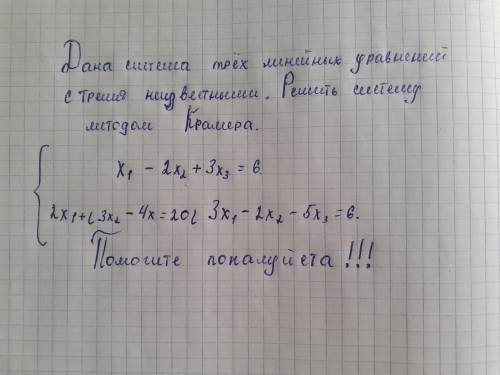 Дана система трёх линейных уравнений
с тремя неизвестными. Решить систему
методом Крамера.
x₁ - 2x₂ + 3x₃ = 6.
2x₁ + ( 3x₂ - 4x = 20( 3x₁ - 2x₂ - 5x₃ = 6.
Помогите пожалуйста !!!